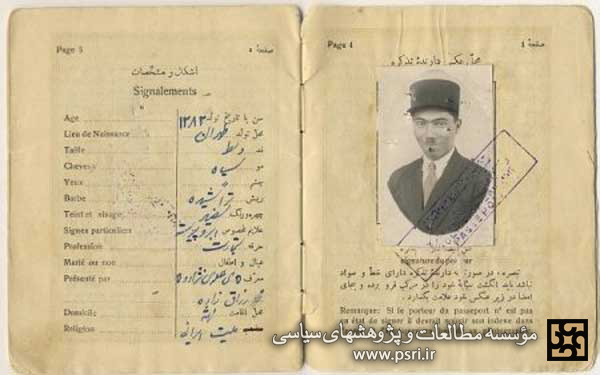 Page 5 صفحهٔ ۵
اشکال و مشخصات
Signalements
Age سن یا تاریخ تولد ۱۲۸۲
Lieu de Naissance محل تولد طهران
Taille قد وسط
Cheveux مو سیاه
Yeux چشم
Barbe ریش تراشیده
Teint et visage سفید
Signes particuliers علائم مخصوص ابرو پیوسته
Profession حرفه تجارت
Marié ou non عیال و اطفال
Présenté par معرف
Domicile محل اقامت
Religion ملیت ایرانی
Page 4 صفحهٔ ٤
محل عکس دارندهٔ تذکره
PASSEPORT
Signature du porteur
تبصره، در صورتیکه دارندهٔ تذکره دارای خط و سواد
نباشد باید انگشت سبابه خود را در مرکب فرو برده و بجای
امضا در زیر عکس خود علامت بگذارد.
Remarque: Si le porteur du passeport n'est pas
en état de signer il devrait noircir son index dans
مؤسسه مطالعات و پژوهشهای سیاسی
www.psri.ir